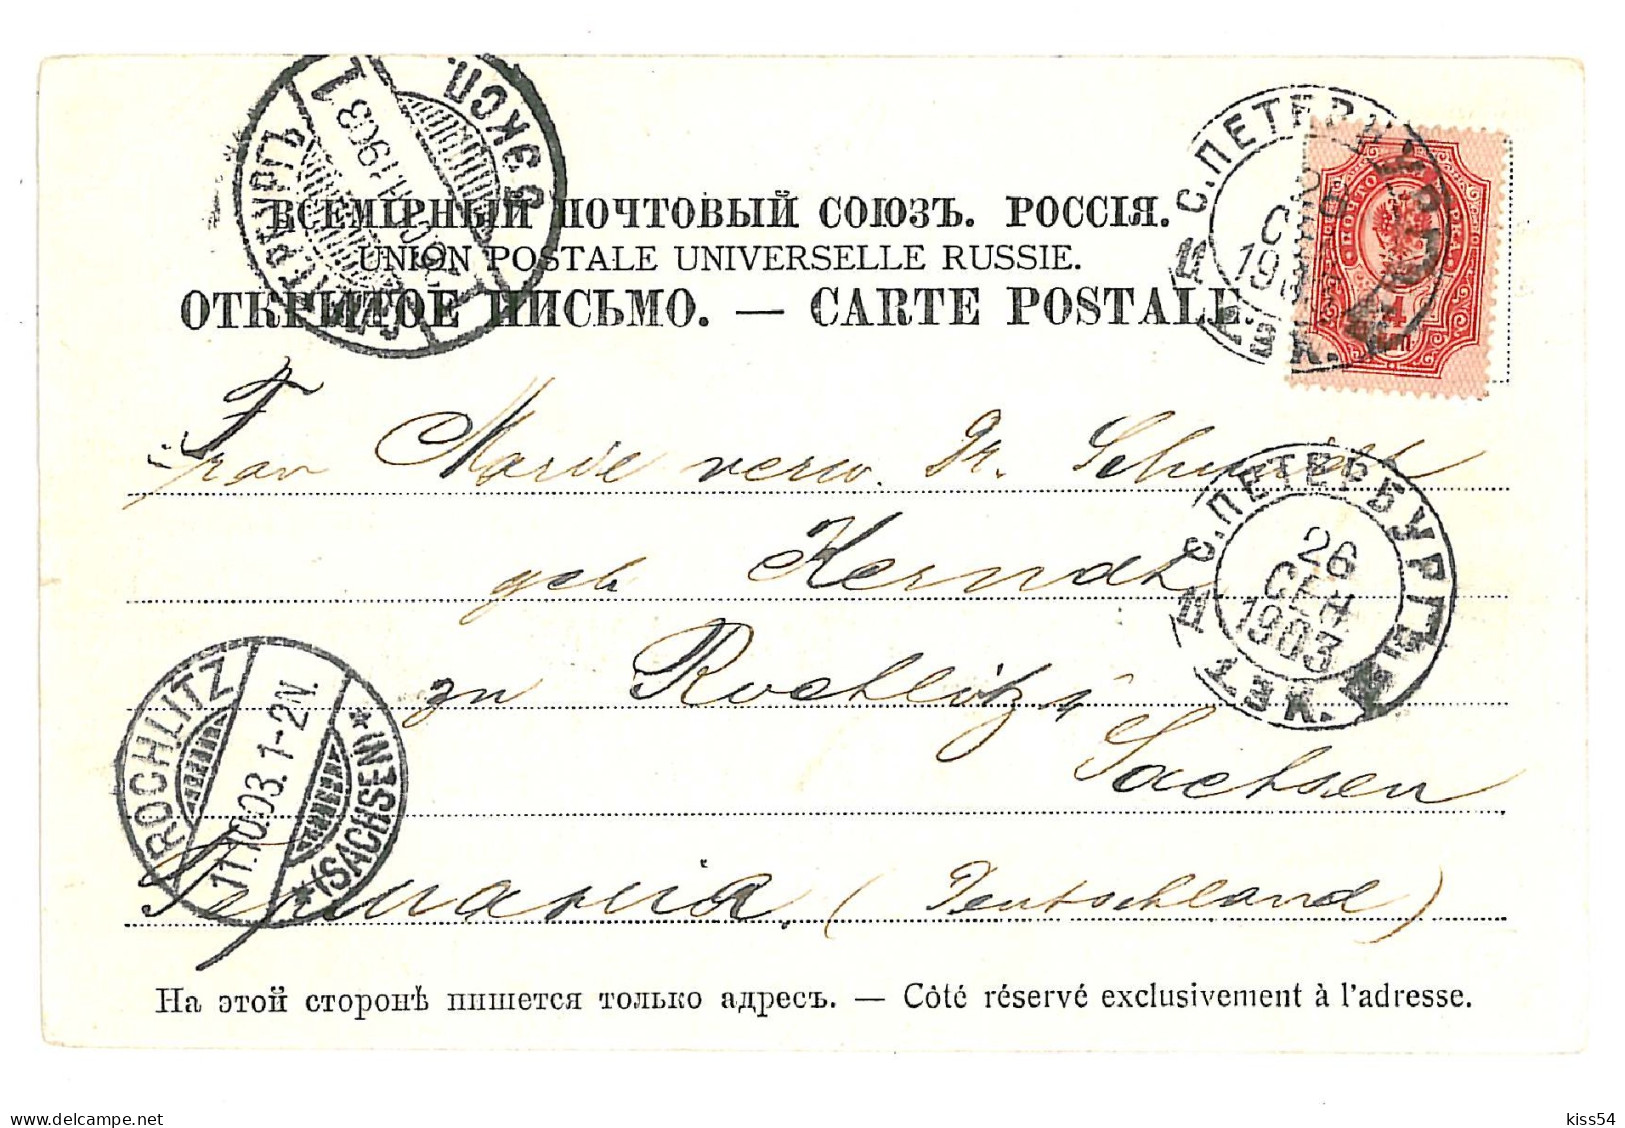 ВСЕМІРНЫЙ ПОЧТОВЫЙ СОЮЗЪ. РОССІЯ.
UNION POSTALE UNIVERSELLE RUSSIE.
ОТКРЫТОЕ ПИСЬМО. — CARTE POSTALE.
Frau Marie verw. Dr. Schmidt
geb Kerndt
zu Rochlitz i/
Sachsen
Германія. (Deutschland)
На этой сторонѣ пишется только адресъ. — Côté réservé exclusivement à l'adresse.
ЭКСП.
1903
С.ПЕТЕРБУРГЪ
26
СЕН
1903
С.ПЕТЕРБУРГЪ
26
СЕН
1903
4
ROCHLITZ
11.10.03. 1-2N.
*(SACHSEN)*
delcampe.net
kiss54